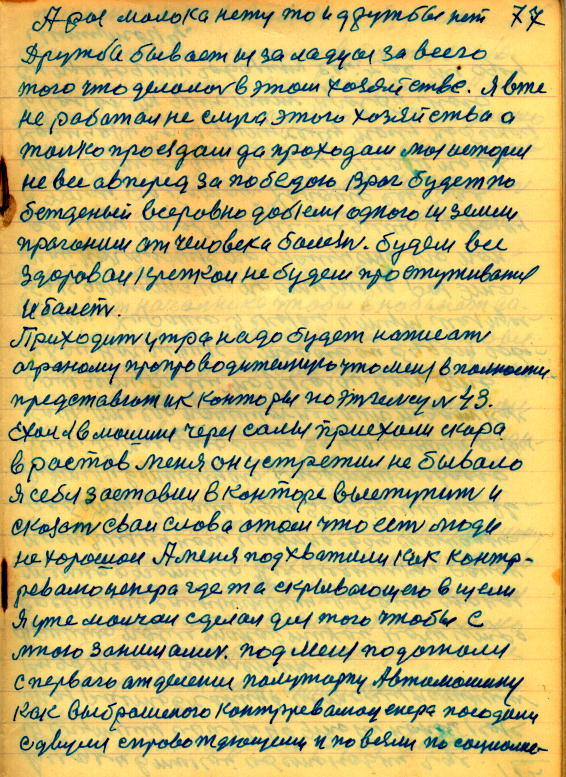 А рас молока нету то и дружбы нет 77
Дружба бывает и за ладуы за всего
того что делалов в этом хозяйстве. Я вте
не работал не смра этого хозяйства а
толко проездам да проходам моя история
не все а вперед за победою враг будет по
бежденый все ровно добем одного из земли
прагоним от человека болезн. будем все
здоровои креткои не будем простуживатие
и балет.
Приходит утра надо будет написат
аграному препроводителную что меня в полности
представяют ик конторы по этилису N 43.
Ехал в машини через салы приехали скара
в растов меня он устретил не бывало
я себя заставил в конторе выступит и
сказат сваи слова о том что ест люди
не хорошаи А меня подхватили как контр-
ревалюценера где та скрывающего в щели
я уже молчал сделал для того чтобы с
много занималис. под меня подогнали
с перваго отделения палуторку Автомошину
как выброшеного контрревалюценера посадили
с двумя спровождающеми и повезли по социоли-